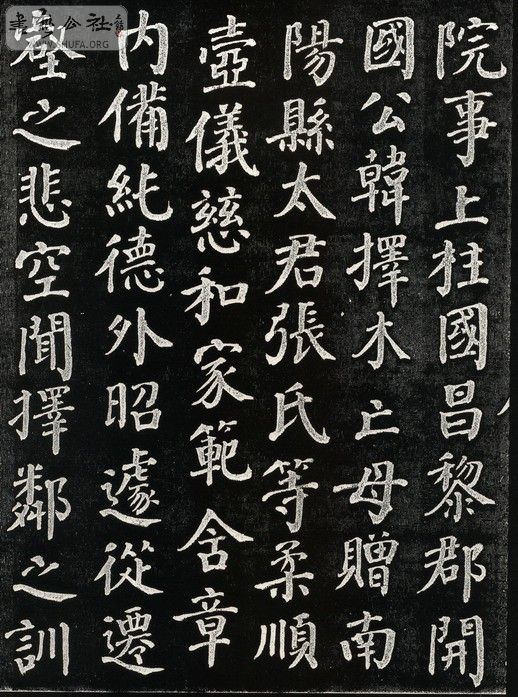 院事上柱國昌黎郡開
國公韓擇木亡母贈南
陽縣太君張氏等柔順
壼儀慈和家範含章
内備純德外昭遽從遷
壑之悲空聞擇鄰之訓
公社
HUFA.ORG